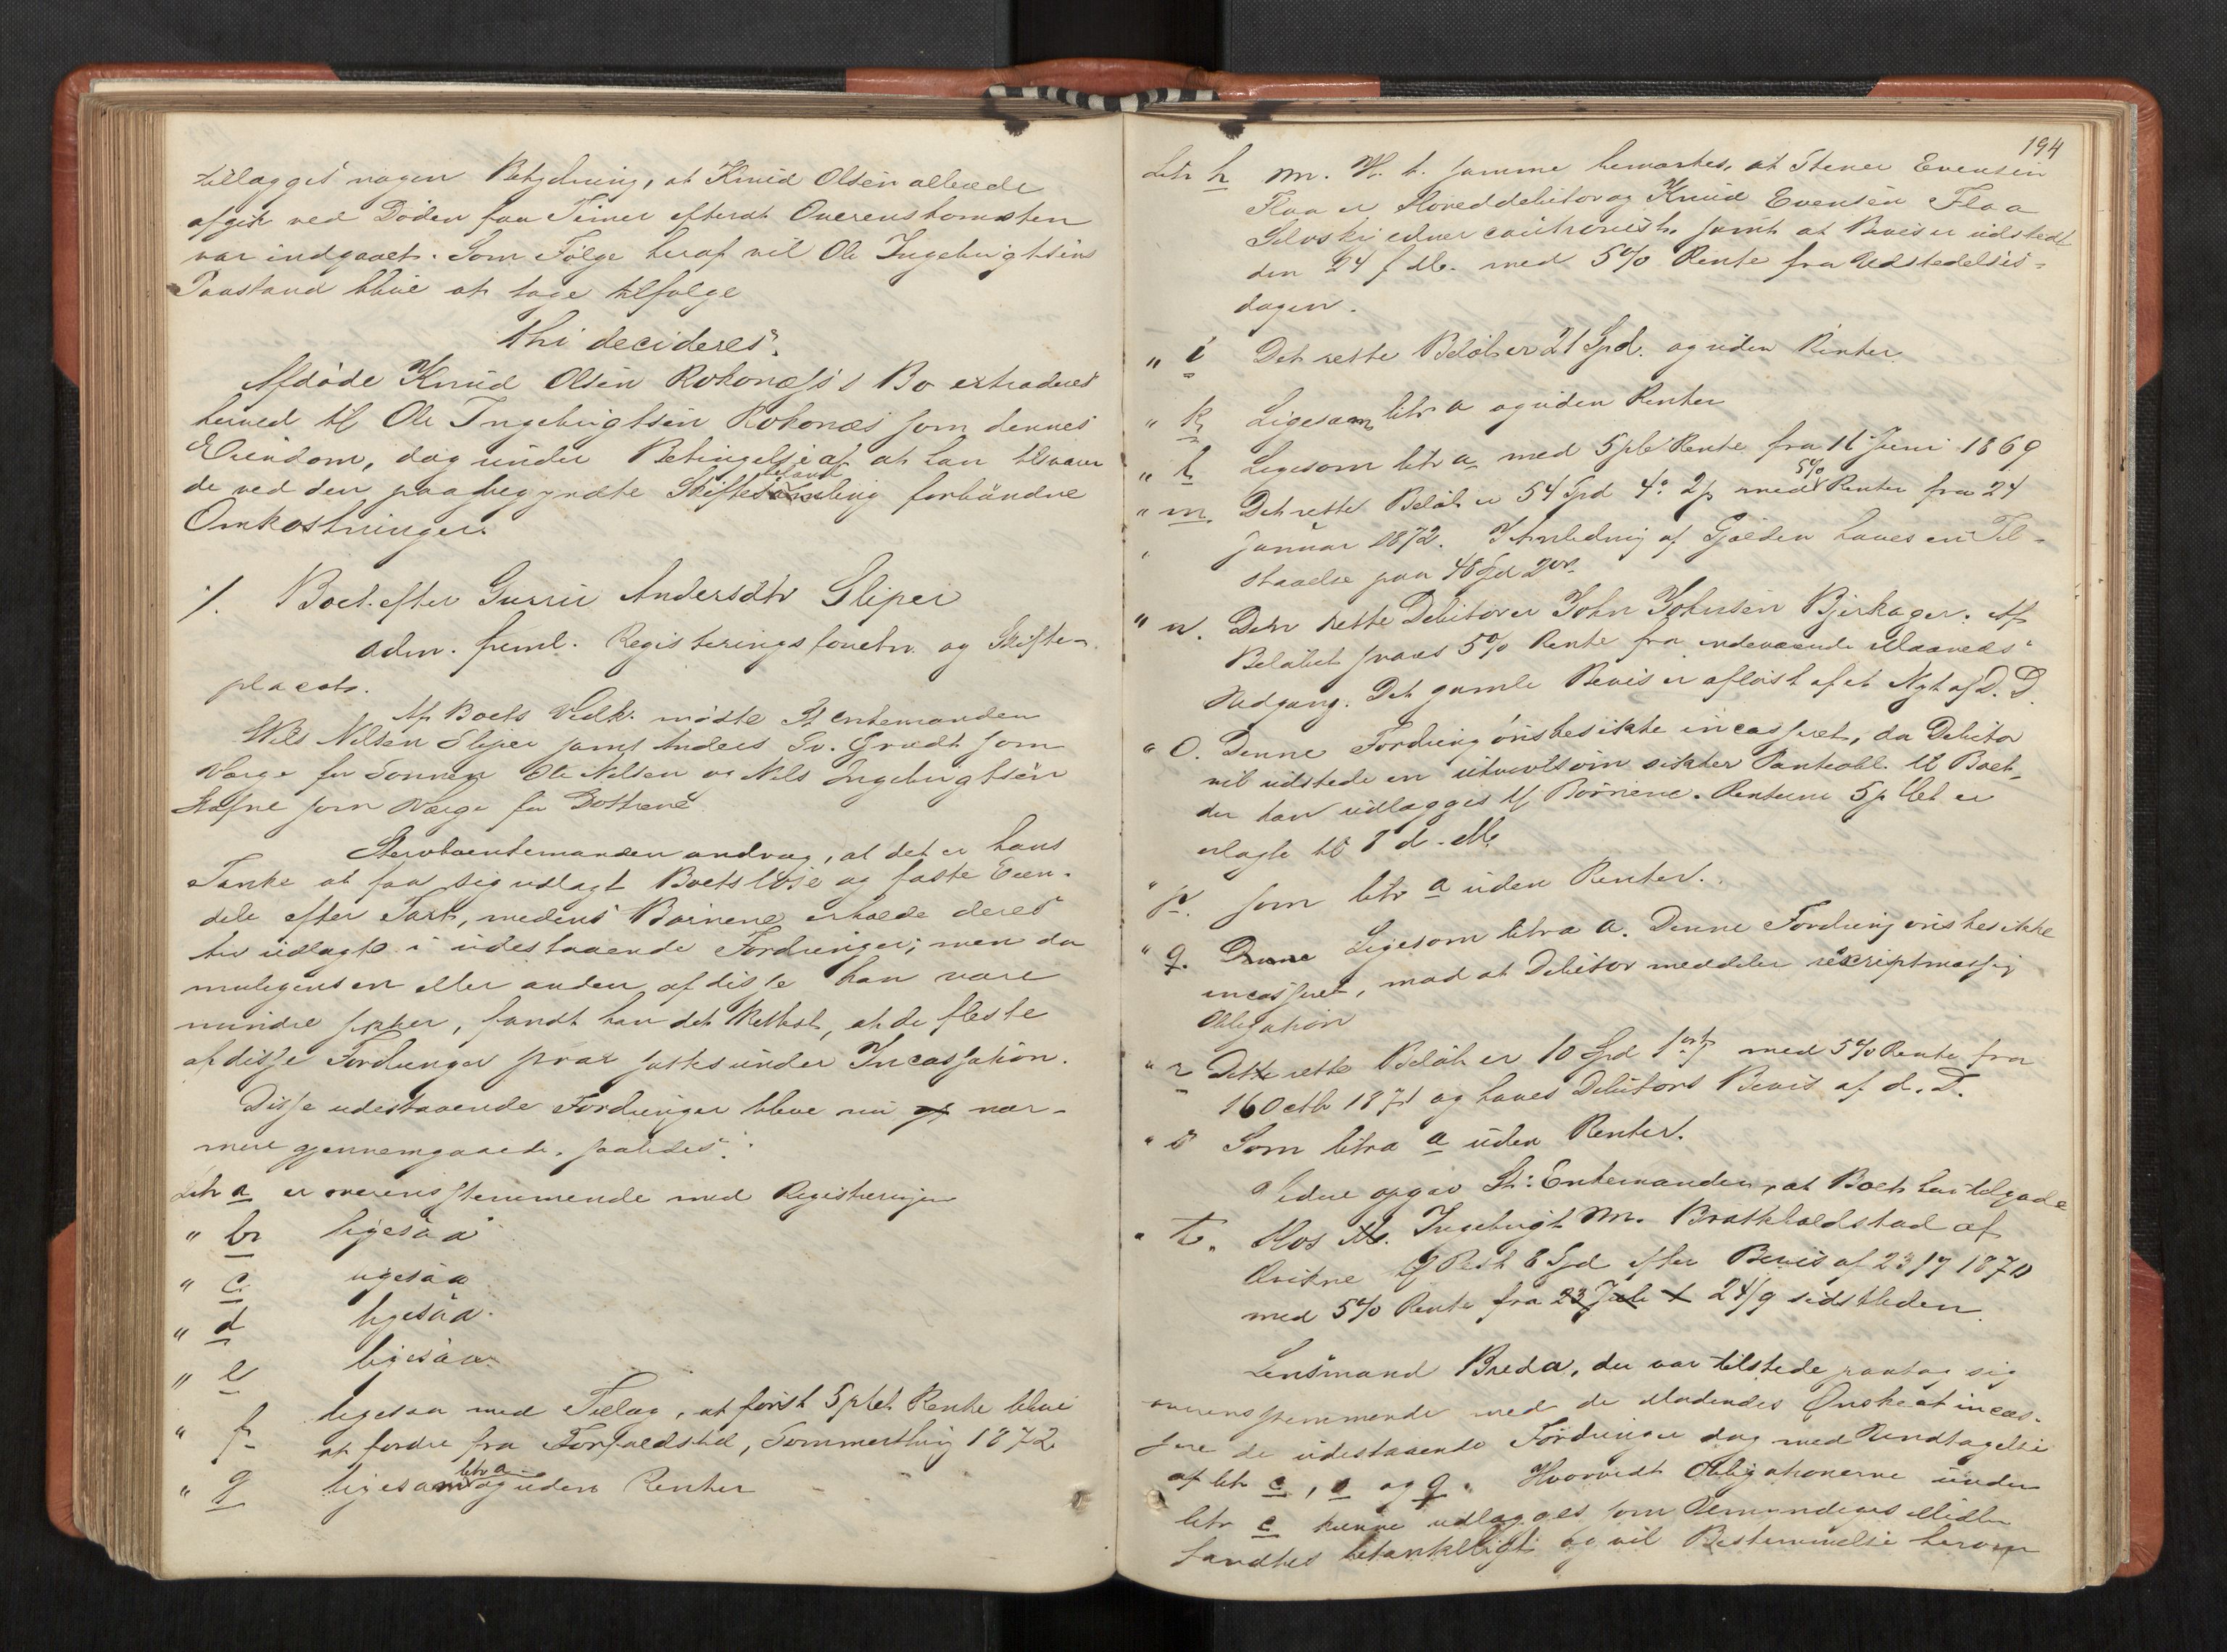 tillægges nogen Betydning, at Knud Olsen allerede
afgik ved Døden faa Timer efterat Overenskomsten
var indgaaet. Som Følge heraf vil Ole Ingebrigtsens
Paastand blive at tage tilfølge
thi decideres:
Afdøde Knud Olsen Rokonæss's Bo extraderes
herved til Ole Ingebrigtsen Rokonæs som dennes
Eiendom, dog under Betingelse af at han tilsvarer
de ved den paabegyndte Skiftebehandling forbundne
Omkostninger.
/. Boet efter Gurrie Andersdtr Sliper
adm. freml. Registreringsforretn. og Skifte-
placat.
Af Boets Vedk. mødte Enkemanden
Nils Nilsen Sliper samt Anders Gr. Grudt som
Værge for Sønnen Ole Nilsen og Nils Ingebrigtsen
Stafne som Værge for Døttrene
Stervboenkemanden androg, at det er hans
Tanke at faa sig udlagt Boets Løse og faste Eien-
dele efter Taxt, medens Børnene erholde deres
Arv udlagte i udestaaende Fordringer; men da
muligens en eller anden af disse kan være
mindre sikker, fandt han det rettest, at de fleste
af disse Fordringer snar sattes under Incassation.
Disse udestaaende Fordringer bleve nu nær-
mere gjennemgaaede, saaledes:
Litr a er overensstemmende med Registreringen
" b ligesaa
" c ligesaa
" d ligesaa.
" e ligesaa
" f ligesaa med Tillæg, at først 5 pCt Rente blive
at fordre fra Forfaldstid, Sommerthing 1872
" g ligesom litr a og uden Renter
194
Litr h M. H. t. samme bemærkes, at Stener Evensen
Flaa er Hoveddebitor og Knud Evensen Flaa
Selvskyldnercautionist, samt at Bevis er udstedt
den 24 f. M. med 5% Rente fra Udstedelses-
dagen.
" i Det rette Beløb er 21 Spd. og uden Renter.
" k Ligesom litr a og uden Renter
" l Ligesom litr a med 5 pCt Rente fra 11 Juni 1869
" m. Det rette Beløb er 54 Spd 4 2 med 5% Renter fra 24
" Januar 1872. I Anledning af Gjælden haves en Til-
staaelse paa 48 Spd 2
" n. Den rette Debitor er John Johnsen Bjerkager. Af
Beløbet svares 5% Rente fra indeværende Maaneds
Udgang. Det gamle Bevis er afløst af et Nyt af D. D.
" o. Denne Fordring ønskes ikke incasseret, da Debitor
vil udstede en utvivlsom sikker Panteobl. til Boet,
der kan udlægges til Børnene. Renterne 5 pCt er
erlagte til 8 d. M.
" p. som litr a uden Renter.
" q. Ligesom litra a. Denne Fordring ønskes ikke
incasseret, mod at Debitor meddeler rescriptmæssig
Obligation
" r Det rette Beløb er 10 Spd 1 ort med 5% Rente fra
16 Octbr 1871 og haves Debitors Bevis af d. D.
" s Som litra a uden Renter.
Videre opgav St: Enkemanden, at Boet har tilgode
" t. Hos Ingebrigt M. Bratkholdstad af
Qvikne Rest 8 Spd efter Bevis af 23/7 1870
med 5% Rente fra 23 Juli 24/9 sidstleden.
Lensmand Breda, der var tilstede paatog sig
overensstemmende med de Mødendes Ønske at incas-
sere de udestaaende Fordringer dog med Undtagelse
af litr c, o og q. Hvorvidt Obligationerne under
litr c kunne udlægges som Umyndiges Midler
fandtes betænkeligt og vil Bestemmelse herom